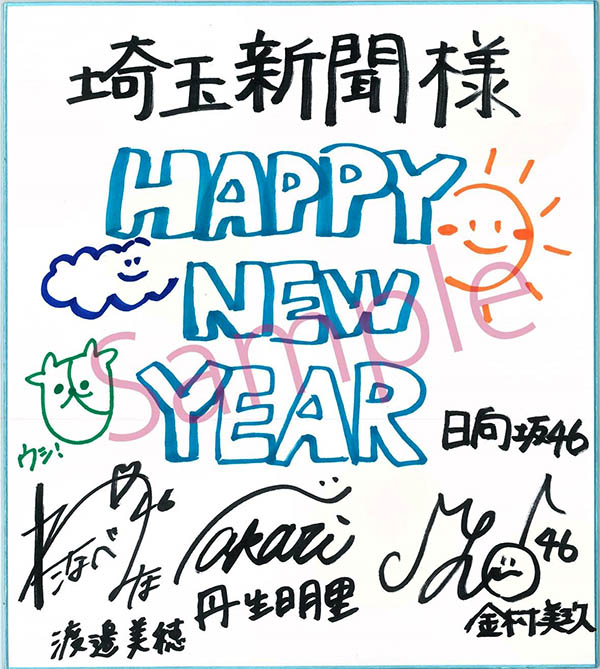 埼玉新聞様
HAPPY
NEW
Sample
YEAR
ウシ!
日向坂46
わなべ
46
Akari
46
渡邉美穂
丹生明里
金村美玖